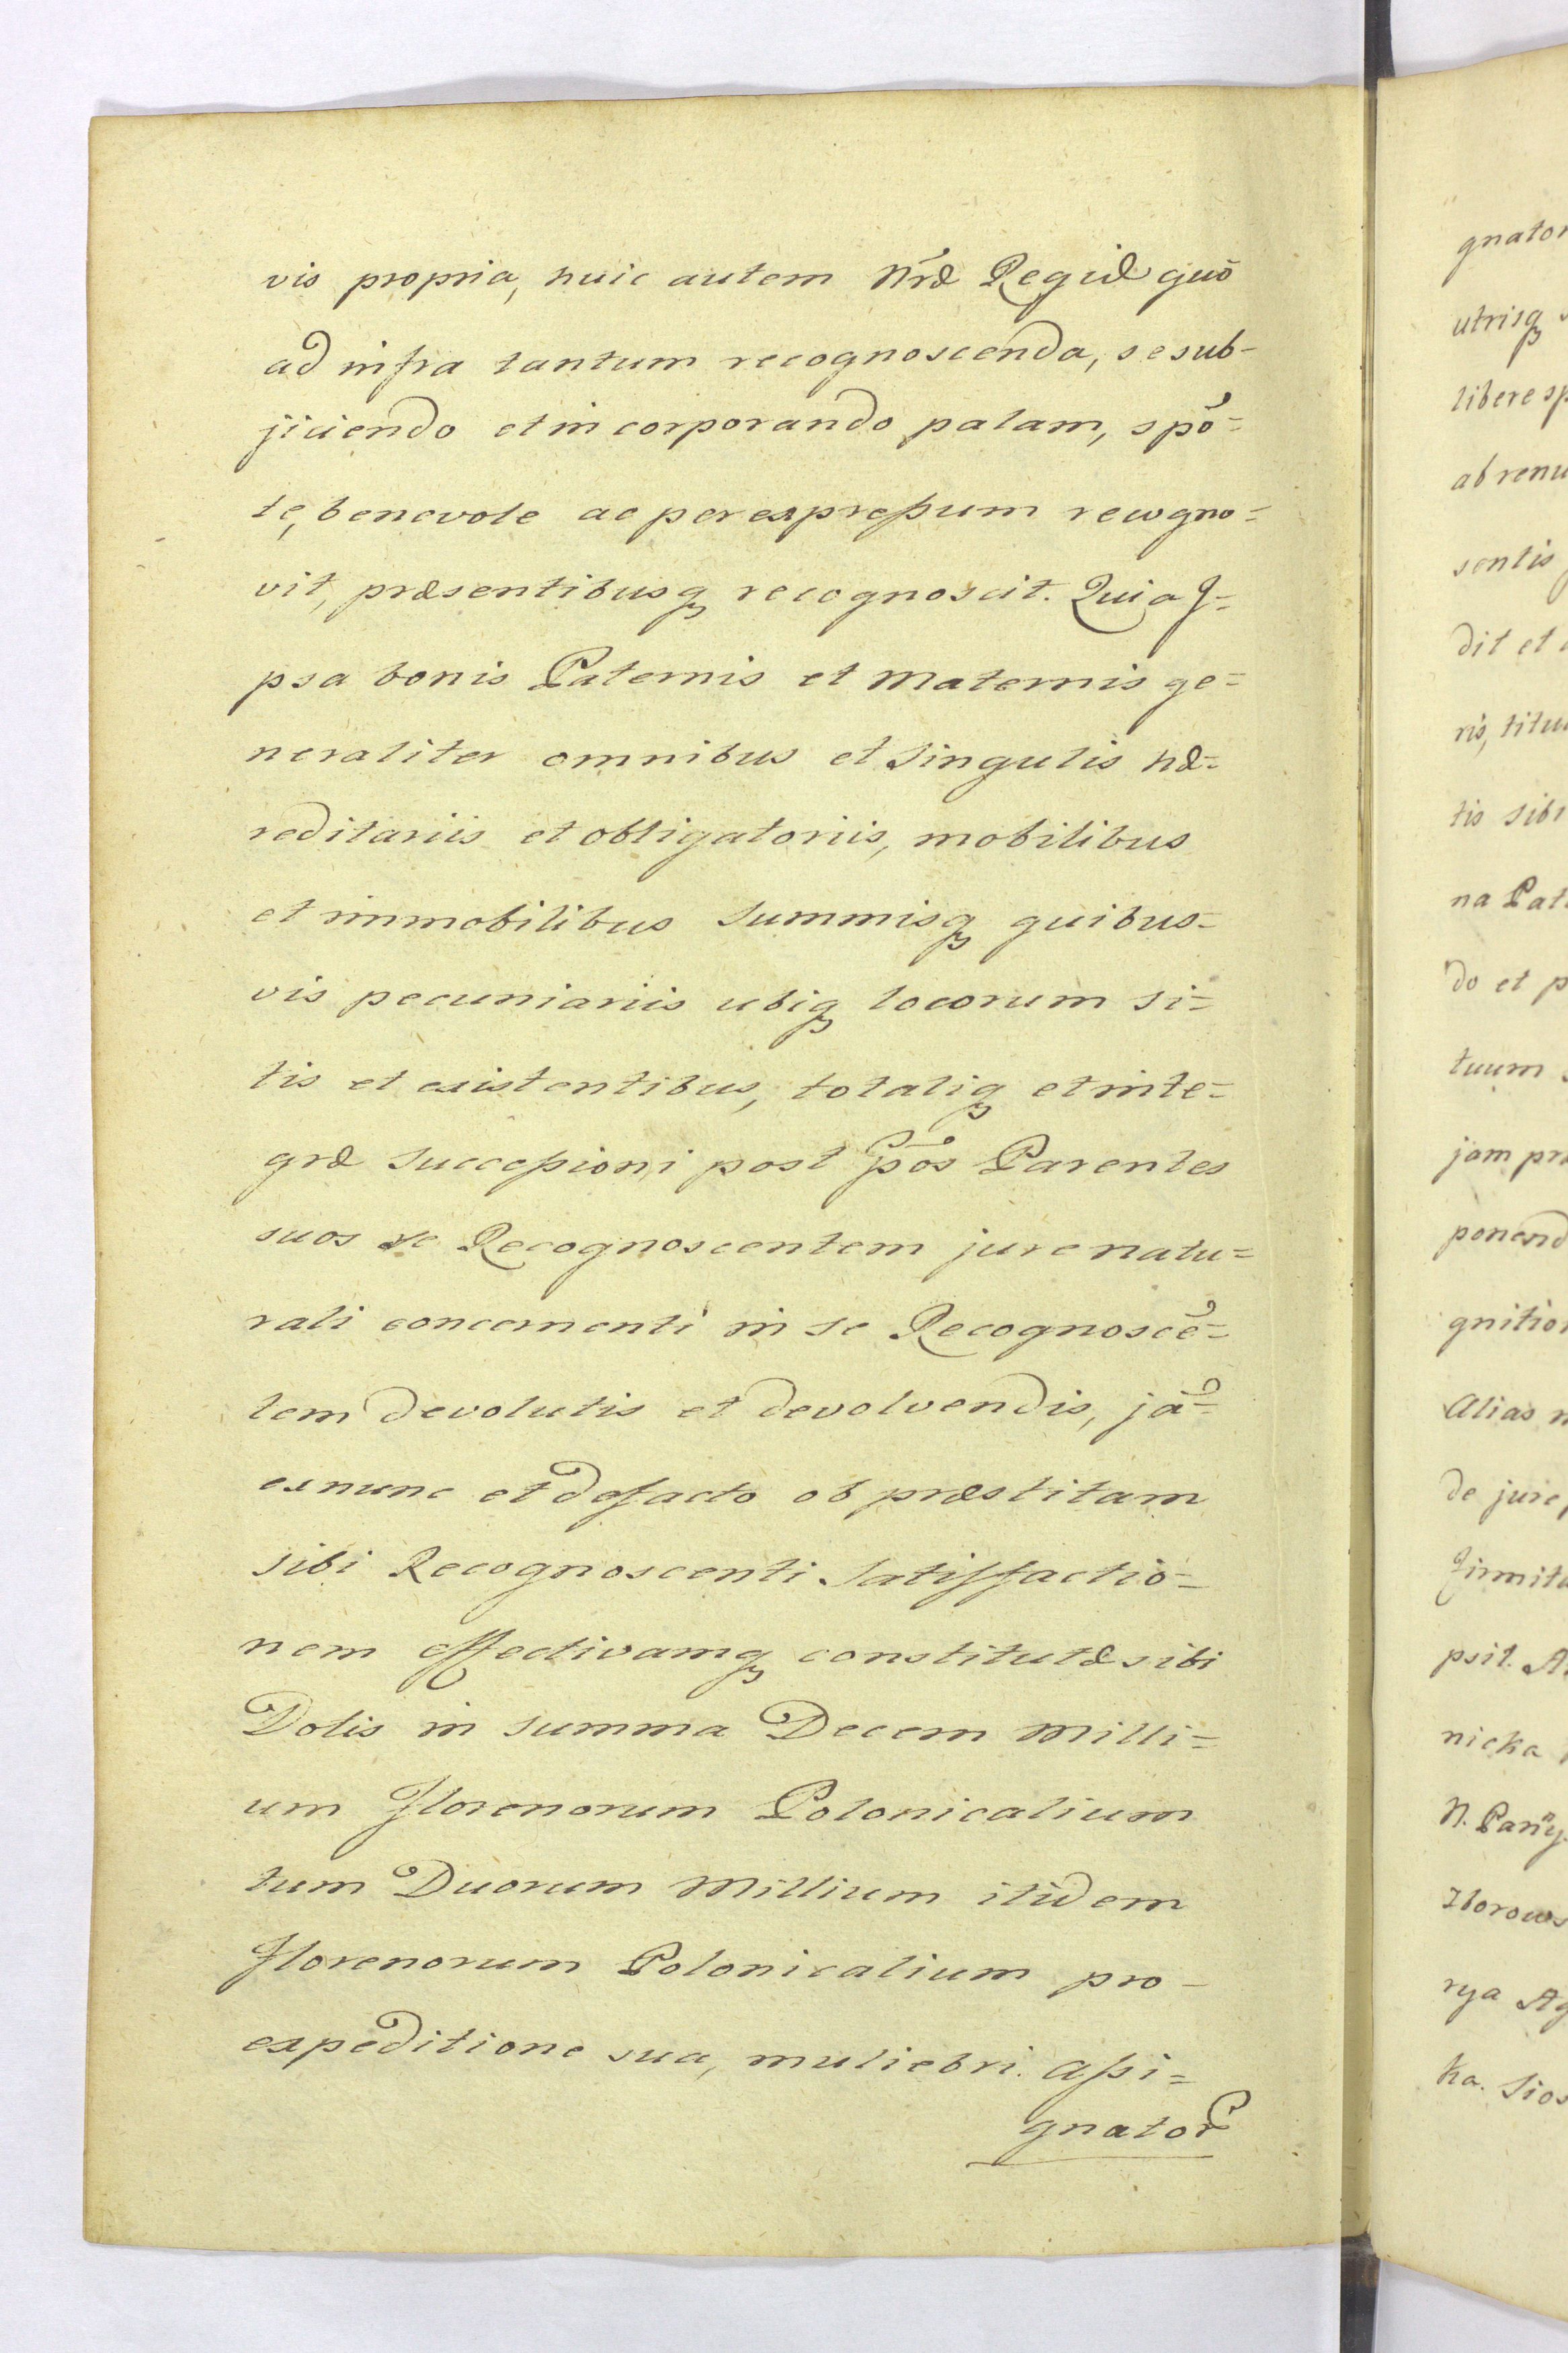 vis propria, huic autem Nræ Regiæ quò
ad infra tantum recognoscenda, se sub-
jiciendo et incorporando palam, spō=
te, benevole ac per expressum recogno=
vit, præsentibusq recognoscit. Quia I=
psa bonis Paternis et Maternis ge=
neraliter omnibus et singulis hæ=
reditariis et obligatoriis, mobilibus
et immobilibus summisq quibus=
vis pecuniariis ubiq locorum si=
tis et existentibus, totaliq et inte=
græ successioni post ppos Parentes
suos se Recognoscentem jure natu=
rali concernenti in se Recognoscē=
tem devolutis et devolvendis, jā=
exnunc et defacto ob præstitam
sibi Recognoscenti satisfactio=
nem effectivamq constitutæ sibi
Dotis in summa Decem Milli=
um Florenorum Polonicalium
tum Duorum Millium itidem
Florenorum Polonicalium pro-
expeditione sua, muliebri. assi=
gnator
gnator
utrisq
libere sp
ab renu
sentis
dit et
ris, titu
tis sibi
na Pat
do et p
tuum
jam præ
ponend
gnitio
Alias n
de jure
firmita
psit. A
nicka
N. Parÿ
Zborows
rya Ag
ka. Sios